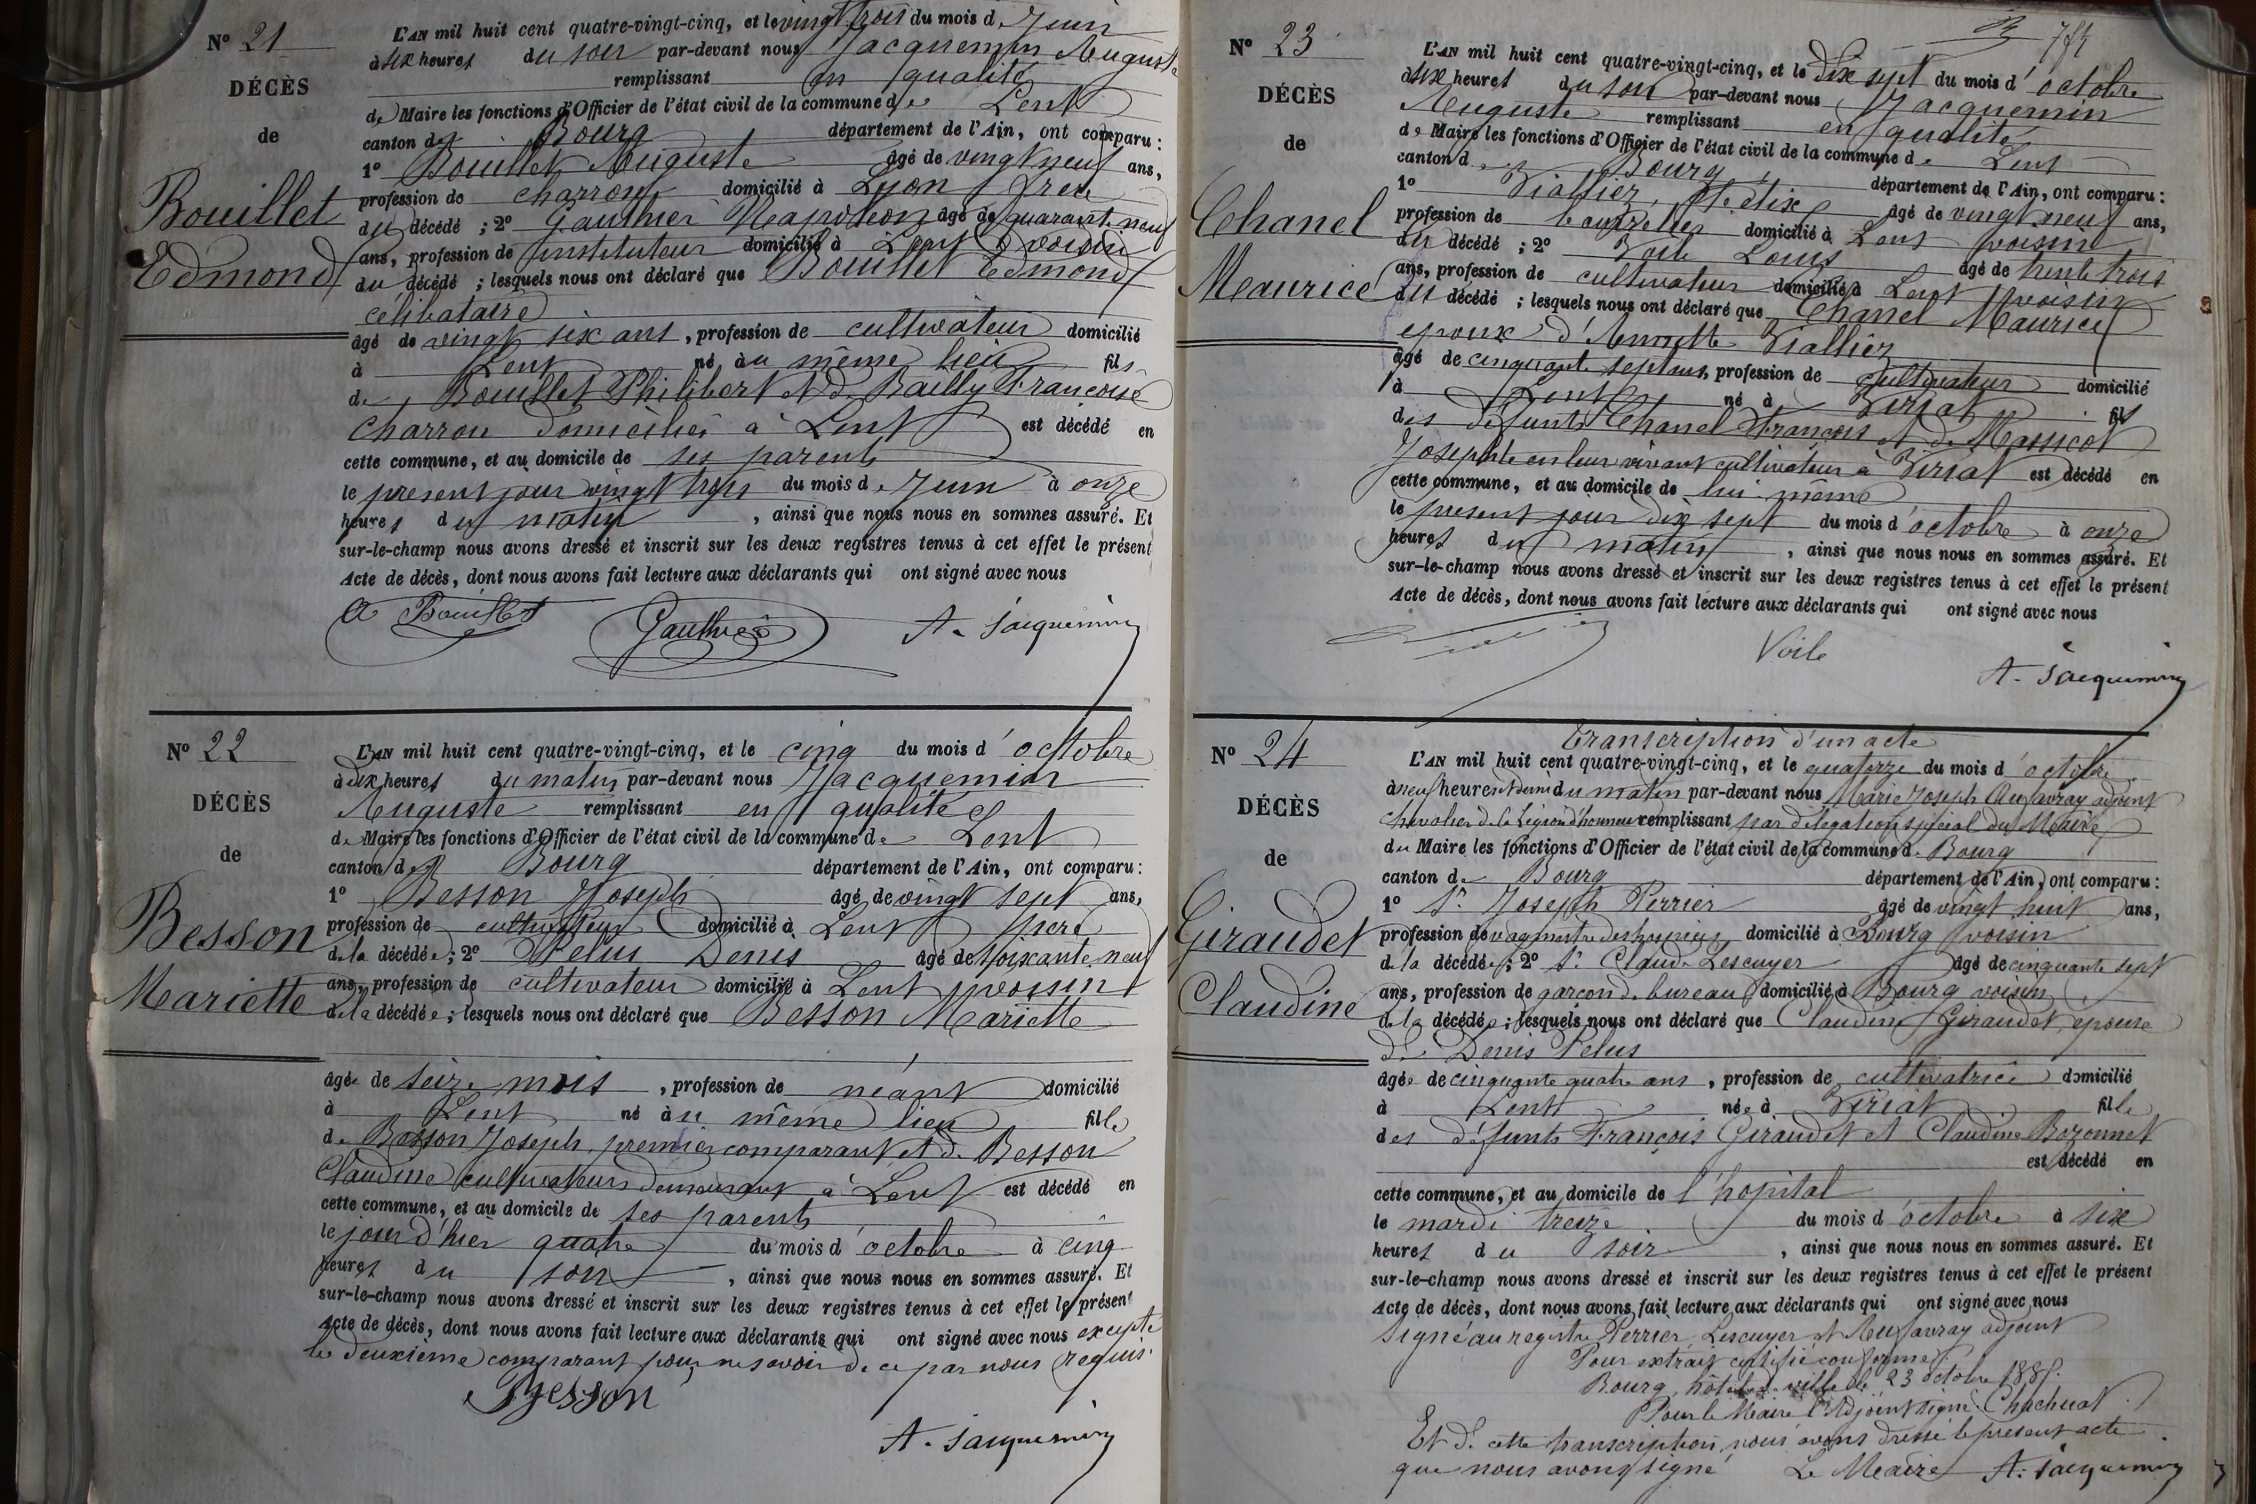 N° 21
DÉCÈS
de
Bouillet
Edmond
L'AN mil huit cent quatre-vingt-cinq, et le vingt trois du mois de Juin
à six heures du soir par-devant nous Jacquemin Auguste
remplissant en qualité
de Maire les fonctions d'Officier de l'état civil de la commune de Lent
canton de Bourg département de l'Ain, ont comparu :
1° Bouillet Auguste âgé de vingt neuf ans,
profession de charron domicilié à Lyon frère
du décédé ; 2° Gauthier Napoléon âgé de quarante neuf
ans, profession de instituteur domicilié à Lent voisin
du décédé ; lesquels nous ont déclaré que Bouillet Edmond
célibataire
âgé de vingt six ans, profession de cultivateur domicilié
à Lent né au même lieu fils
de Bouillet Philibert et de Bailly Françoise
charron domiciliés à Lent est décédé en
cette commune, et au domicile de ses parents
le présent jour vingt trois du mois de Juin à onze
heures du matin, ainsi que nous nous en sommes assuré. Et
sur-le-champ nous avons dressé et inscrit sur les deux registres tenus à cet effet le présent
Acte de décès, dont nous avons fait lecture aux déclarants qui ont signé avec nous
A Bouillet Gauthier A. Jacquemin
N° 22
DÉCÈS
de
Besson
Mariette
L'AN mil huit cent quatre-vingt-cinq, et le cinq du mois d'octobre
à dix heures du matin par-devant nous Jacquemin
Auguste remplissant en qualité
de Maire les fonctions d'Officier de l'état civil de la commune de Lent
canton de Bourg département de l'Ain, ont comparu :
1° Besson Joseph âgé de vingt sept ans,
profession de cultivateur domicilié à Lent père
de la décédée ; 2° Pelus Denis âgé de soixante neuf
ans, profession de cultivateur domicilié à Lent voisin
de la décédée ; lesquels nous ont déclaré que Besson Mariette
âgée de seize mois, profession de néant domicilié
à Lent né au même lieu fille
de Besson Joseph, premier comparant et de Besson
Claudine cultivateurs demeurant à Lent est décédé en
cette commune, et au domicile de ses parents
le jour d'hier quatre du mois d'octobre à cinq
heures du soir, ainsi que nous nous en sommes assuré. Et
sur-le-champ nous avons dressé et inscrit sur les deux registres tenus à cet effet le présent
Acte de décès, dont nous avons fait lecture aux déclarants qui ont signé avec nous excepté
le deuxième comparant pour ne savoir de ce par nous requis
Besson
A. Jacquemin
N° 23
DÉCÈS
de
Chanel
Maurice
L'AN mil huit cent quatre-vingt-cinq, et le dix sept du mois d'octobre
à six heures du soir par-devant nous Jacquemin
Auguste remplissant en qualité
de Maire les fonctions d'Officier de l'état civil de la commune de Lent
canton de Bourg département de l'Ain, ont comparu :
1° Viallier, Félix âgé de vingt neuf ans,
profession de bourrelier domicilié à Lent voisin
du décédé ; 2° Voile Louis âgé de trente trois
ans, profession de cultivateur domicilié à Lent voisin
du décédé ; lesquels nous ont déclaré que Chanel Maurice
époux d'Annette Viallier
âgé de cinquante sept ans, profession de cultivateur domicilié
à Lent né à Viriat fils
des défunts Chanel François et de Massicot
Josephte en leur vivant cultivateur à Viriat est décédé en
cette commune, et au domicile de lui-même
le présent jour dix sept du mois d'octobre à onze
heures du matin, ainsi que nous nous en sommes assuré. Et
sur-le-champ nous avons dressé et inscrit sur les deux registres tenus à cet effet le présent
Acte de décès, dont nous avons fait lecture aux déclarants qui ont signé avec nous
Voile
A. Jacquemin
N° 24
DÉCÈS
de
Giraudet
Claudine
Transcription d'un acte
L'AN mil huit cent quatre-vingt-cinq, et le quatorze du mois d'octobre
à neuf heures et demi du matin par-devant nous Marie Joseph Aufavray adjoint
chevalier de la Légion d'honneur remplissant par délégation spécial du Maire
du Maire les fonctions d'Officier de l'état civil de la commune de Bourg
canton de Bourg département de l'Ain, ont comparu :
1° Sr Joseph Perrier âgé de vingt huit ans,
profession de vaguemestre des hospices domicilié à Bourg voisin
de la décédée ; 2° Sr Claude Lescuyer âgé de cinquante sept
ans, profession de garçon de bureau domicilié à Bourg voisin
de la décédée ; lesquels nous ont déclaré que Claudine Giraudet, épouse
de Denis Pelus
âgée de cinquante quatre ans, profession de cultivatrice domicilié
à Lent née à Viriat fille
des défunts François Giraudet et Claudine Bozonnet
est décédé en
cette commune, et au domicile de l'hopital
le mardi treize du mois d'octobre à six
heures du soir, ainsi que nous nous en sommes assuré. Et
sur-le-champ nous avons dressé et inscrit sur les deux registres tenus à cet effet le présent
Acte de décès, dont nous avons fait lecture aux déclarants qui ont signé avec nous
Signé au registre Perrier, Lescuyer et Aufavray adjoint
Pour extrait certifié conforme
Bourg, hôtel de ville le 23 octobre 1885.
Pour le Maire l'Adjoint signé : Chachuat
Et de cette transcription, nous avons dressé le présent acte
que nous avons signé Le Maire A. Jacquemin